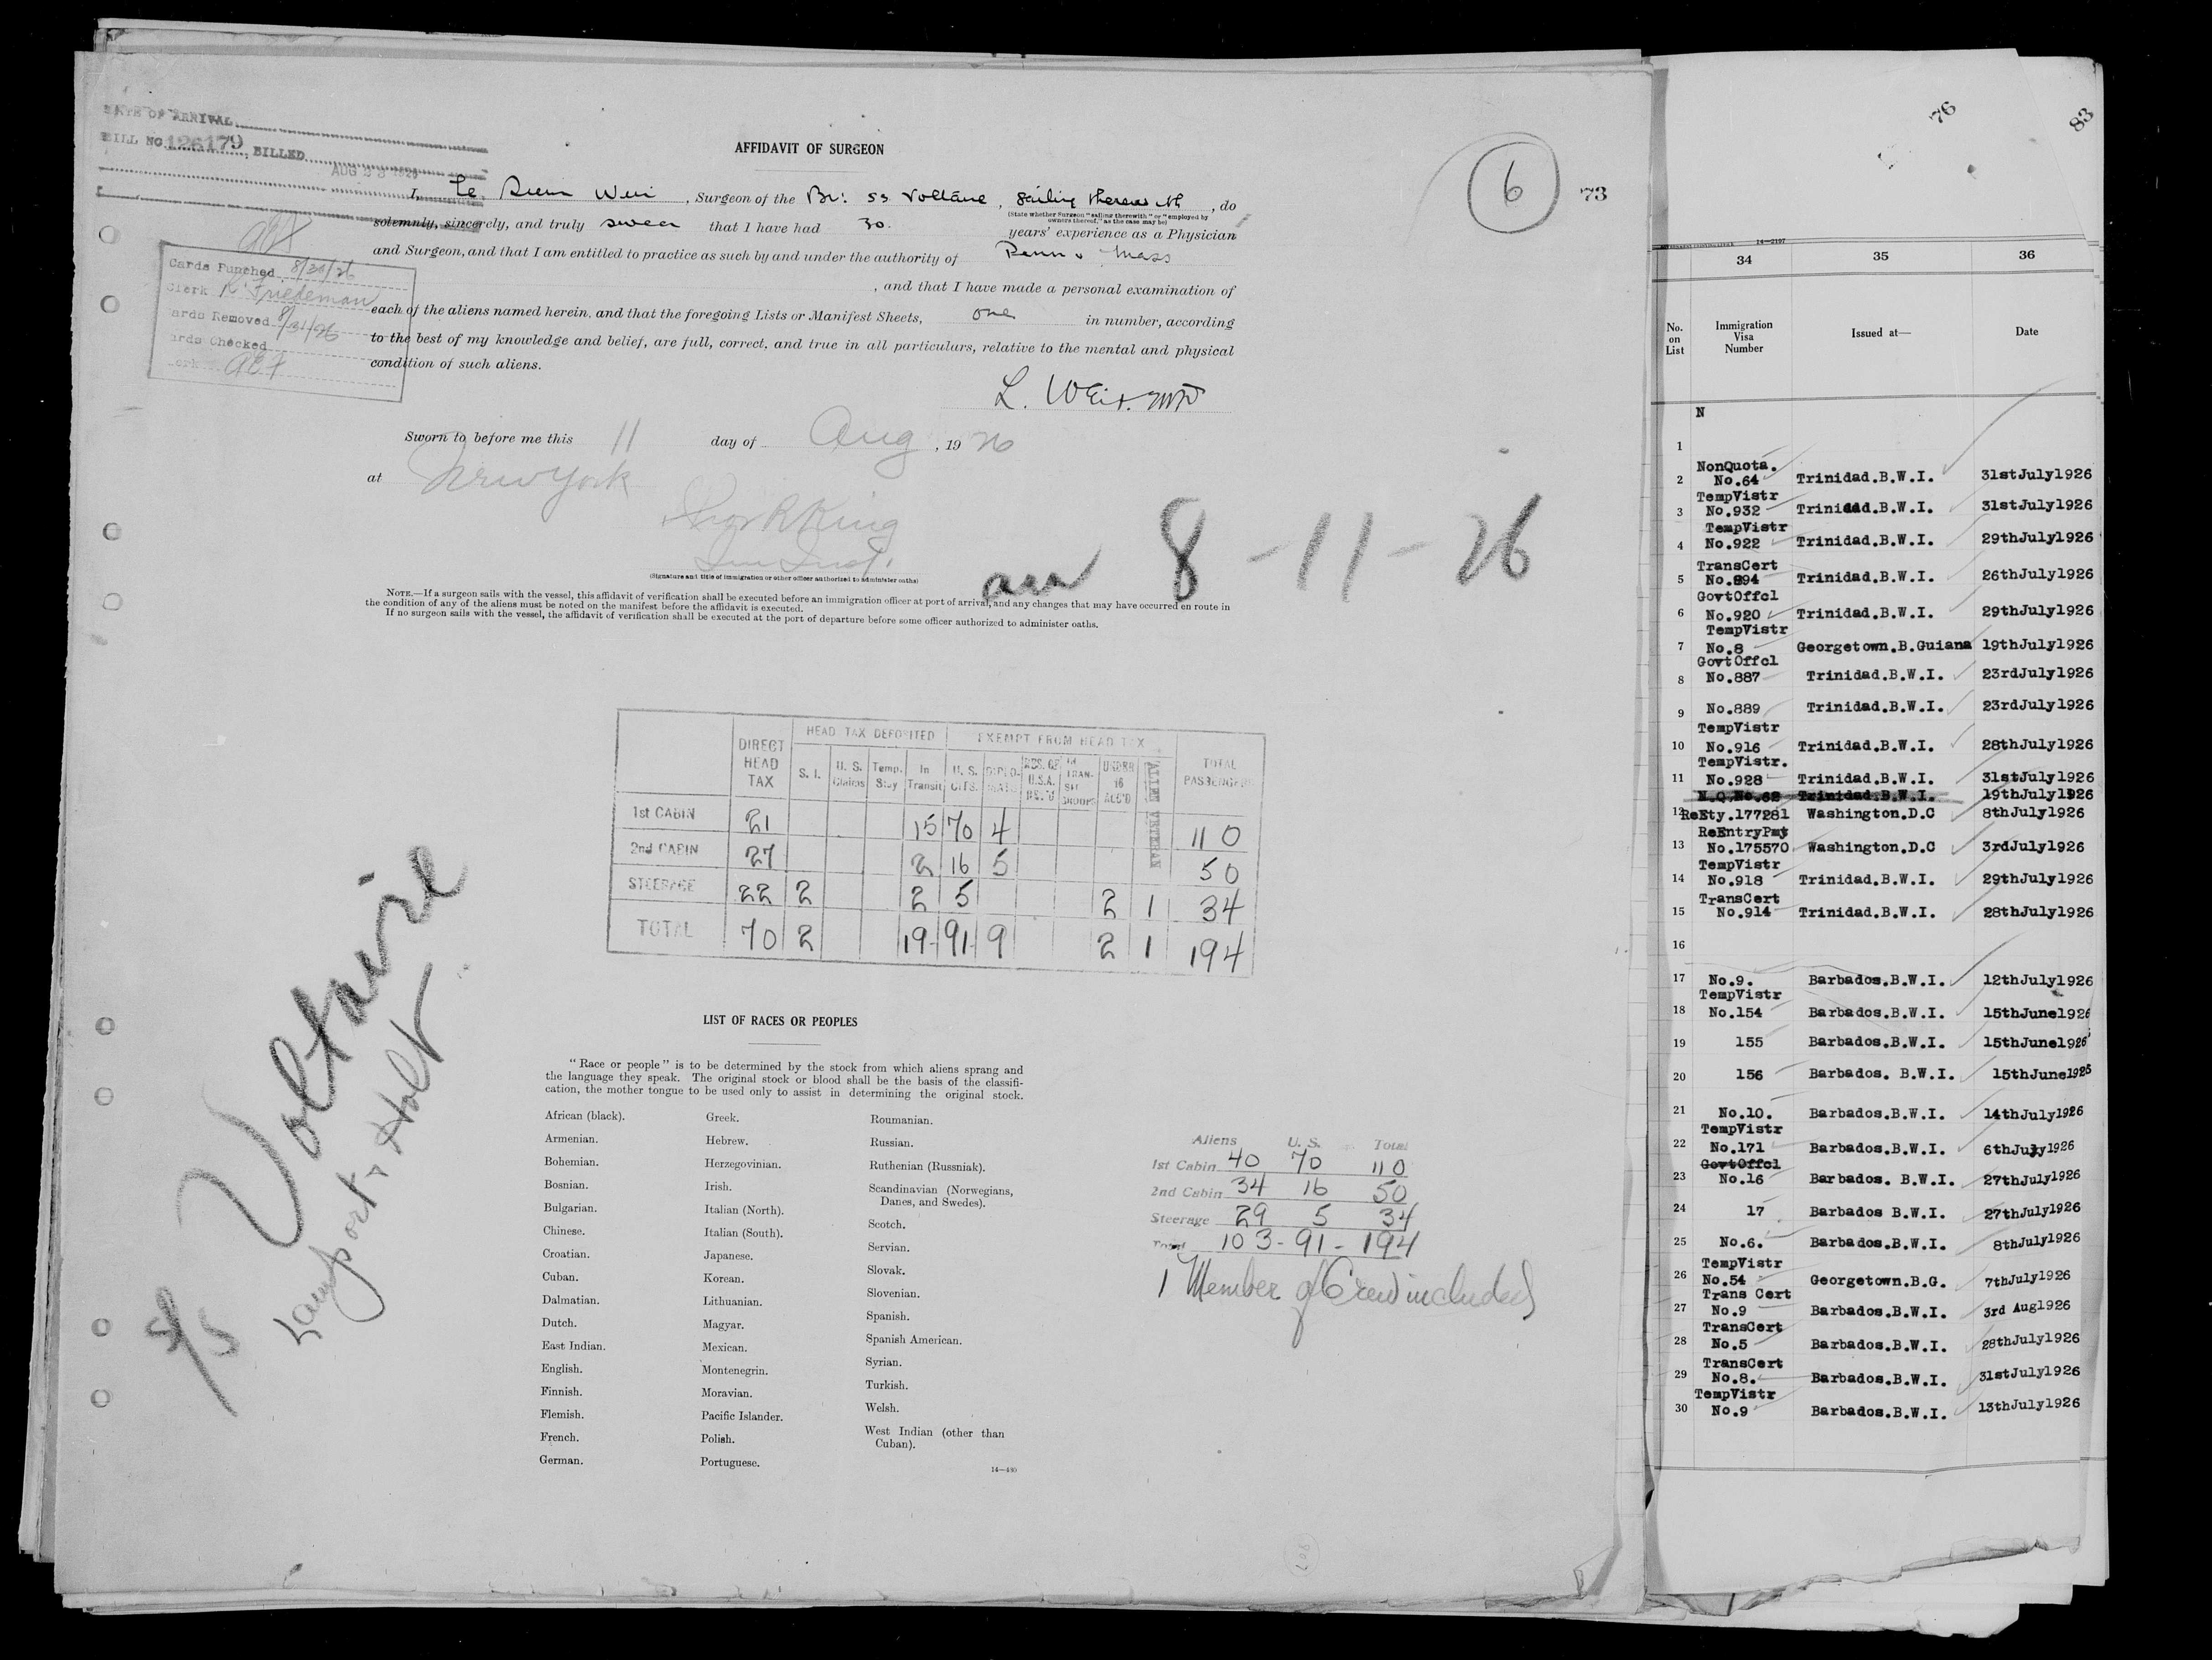 DATE OF ARRIVAL
BILL NO. 126179, BILLED
AUG 23 1926
AFFIDAVIT OF SURGEON
6
73
76
83
I, , Surgeon of the Br: SS Voltaire, sailing therewith, do
(State whether Surgeon "sailing therewith" or "employed by
owners thereof," as the case may be)
solemnly, sincerely, and truly swear that I have had 30 years' experience as a Physician
and Surgeon, and that I am entitled to practice as such by and under the authority of Penn & Mass
, and that I have made a personal examination of
each of the aliens named herein, and that the foregoing Lists or Manifest Sheets, one in number, according
to the best of my knowledge and belief, are full, correct, and true in all particulars, relative to the mental and physical
condition of such aliens.
Cards Punched 8/30/26
Clerk R. Friedeman
Cards Removed 8/31/26
Cards Checked
Clerk
Sworn to before me this 11 day of Aug, 1926
at New York
King
(Signature and title of immigration or other officer authorized to administer oaths)
arr 8-11-26
NOTE.—If a surgeon sails with the vessel, this affidavit of verification shall be executed before an immigration officer at port of arrival, and any changes that may have occurred en route in
the condition of any of the aliens must be noted on the manifest before the affidavit is executed.
If no surgeon sails with the vessel, the affidavit of verification shall be executed at the port of departure before some officer authorized to administer oaths.
HEAD TAX DEPOSITED EXEMPT FROM HEAD TAX
DIRECT HEAD TAX S. I. U. S. Claims Temp. Stay In Transit U. S. CITS. DIPLO-MATS RES. OF U.S.A. RET'D IN TRAN-SIT GROUPS UNDER 16 ACC'D ALIEN VETERAN TOTAL PASSENGERS
1st CABIN 21 15 70 4 110
2nd CABIN 27 2 16 5 50
STEERAGE 22 2 2 5 2 1 34
TOTAL 70 2 19 91 9 2 1 194
S/S Voltaire
Lamport & Holt
LIST OF RACES OR PEOPLES
"Race or people" is to be determined by the stock from which aliens sprang and
the language they speak. The original stock or blood shall be the basis of the classifi-
cation, the mother tongue to be used only to assist in determining the original stock.
African (black).
Armenian.
Bohemian.
Bosnian.
Bulgarian.
Chinese.
Croatian.
Cuban.
Dalmatian.
Dutch.
East Indian.
English.
Finnish.
Flemish.
French.
German.
Greek.
Hebrew.
Herzegovinian.
Irish.
Italian (North).
Italian (South).
Japanese.
Korean.
Lithuanian.
Magyar.
Mexican.
Montenegrin.
Moravian.
Pacific Islander.
Polish.
Portuguese.
Roumanian.
Russian.
Ruthenian (Russniak).
Scandinavian (Norwegians,
Danes, and Swedes).
Scotch.
Servian.
Slovak.
Slovenian.
Spanish.
Spanish American.
Syrian.
Turkish.
Welsh.
West Indian (other than
Cuban).
14—430
Aliens U. S. Total
1st Cabin 40 70 110
2nd Cabin 34 16 50
Steerage 29 5 34
Total 103-91-194
1 Member of Crew included
14—2197
34 35 36
No. on List Immigration Visa Number Issued at— Date
N
1
NonQuota.
2 No.64 Trinidad.B.W.I. 31stJuly1926
TempVistr
3 No.932 Trinidad.B.W.I. 31stJuly1926
TempVistr
4 No.922 Trinidad.B.W.I. 29thJuly1926
TransCert
5 No.894 Trinidad.B.W.I. 26thJuly1926
GovtOffcl
6 No.920 Trinidad.B.W.I. 29thJuly1926
TempVistr
7 No.8 Georgetown.B.Guiana 19thJuly1926
GovtOffcl
8 No.887 Trinidad.B.W.I. 23rdJuly1926
9 No.889 Trinidad.B.W.I. 23rdJuly1926
TempVistr
10 No.916 Trinidad.B.W.I. 28thJuly1926
TempVistr.
11 No.928 Trinidad.B.W.I. 31stJuly1926
N.Q.No.62 Trinidad.B.W.I. 19thJuly1926
12 ReEty.177281 Washington.D.C 8thJuly1926
ReEntryPmt
13 No.175570 Washington.D.C 3rdJuly1926
TempVistr
14 No.918 Trinidad.B.W.I. 29thJuly1926
TransCert
15 No.914 Trinidad.B.W.I. 28thJuly1926
16
17 No.9. Barbados.B.W.I. 12thJuly1926
TempVistr
18 No.154 Barbados.B.W.I. 15thJune1926
19 155 Barbados.B.W.I. 15thJune1926
20 156 Barbados. B.W.I. 15thJune1926
21 No.10. Barbados.B.W.I. 14thJuly1926
TempVistr
22 No.171 Barbados.B.W.I. 6thJuly1926
GovtOffcl
23 No.16 Barbados. B.W.I. 27thJuly1926
24 17 Barbados B.W.I. 27thJuly1926
25 No.6. Barbados.B.W.I. 8thJuly1926
TempVistr
26 No.54 Georgetown.B.G. 7thJuly1926
Trans Cert
27 No.9 Barbados.B.W.I. 3rd Aug1926
TransCert
28 No.5 Barbados.B.W.I. 28thJuly1926
TransCert
29 No.8. Barbados.B.W.I. 31stJuly1926
TempVistr
30 No.9 Barbados.B.W.I. 13thJuly1926